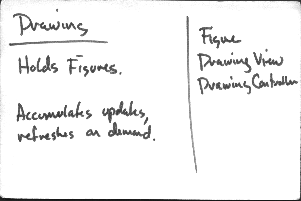 Drawing
Holds Figures.
Accumulates updates,
refreshes on demand.
Figure
Drawing View
Drawing Controller